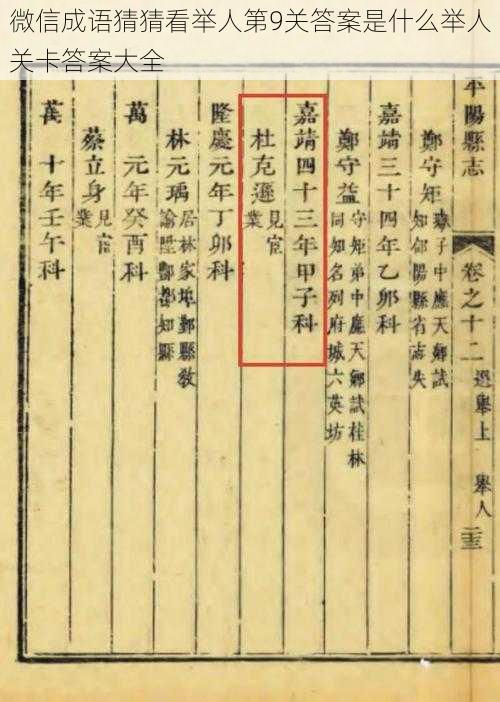 微信成语猜猜看举人第9关答案是什么举人
关卡答案大全
平陽縣志
卷之十二
選舉上
舉人
鄭守矩
子中應天鄉試
知郃陽縣省志失
嘉靖三十四年乙卯科
鄭守益
守矩弟中應天鄉試桂林
同知名列府城六英坊
嘉靖四十三年甲子科
杜克遜
見宦
業
隆慶元年丁卯科
林元瑀
居林家埠鄞縣教
諭陞知縣
萬
元年癸酉科
蔡立身
見宦
業
萬
十年壬午科